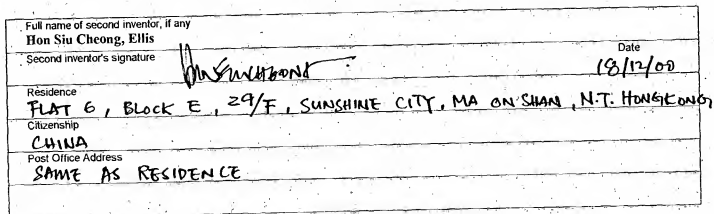 Full name of second inventor, if any
Hon Siu Cheong, Ellis
Second inventor's signature
Date
18/12/00
Residence
FLAT 6, BLOCK E, 29/F, SUNSHINE CITY, MA ON SHAN, N.T. HONGKONG
Citizenship
CHINA
Post Office Address
SAME AS RESIDENCE